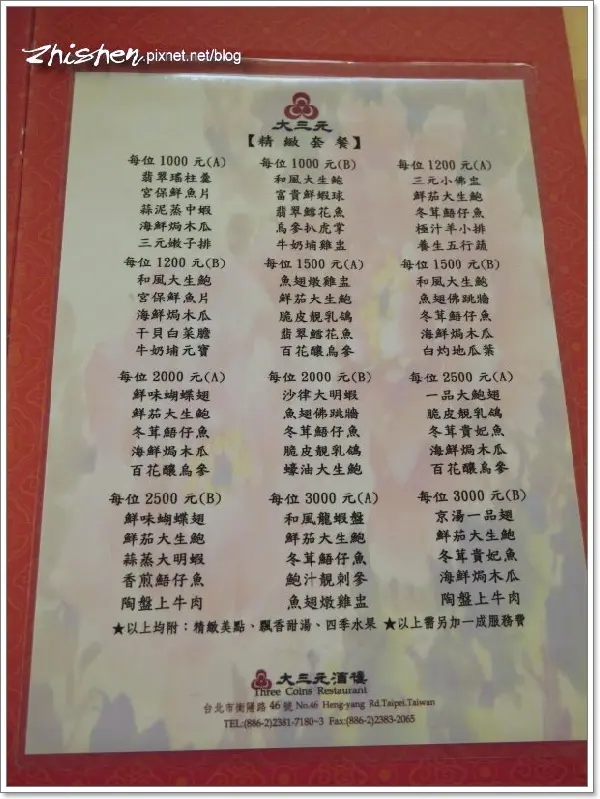 zhishen.pixnet.net/blog
大三元
【精緻套餐】
每位 1000 元(A)
翡翠瑤柱羹
宮保鮮魚片
蒜泥蒸中蝦
海鮮焗木瓜
三元嫩子排
每位 1000 元(B)
和風大生鮑
富貴鮮蝦球
翡翠鱈花魚
烏參扒虎掌
牛奶埔雞盅
每位 1200 元(A)
三元小佛盅
鮮茄大生鮑
冬茸鰡仔魚
極汁羊小排
養生五行蔬
每位 1200 元(B)
和風大生鮑
宮保鮮魚片
海鮮焗木瓜
干貝白菜膽
牛奶埔元寶
每位 1500 元(A)
魚翅燉雞盅
鮮茄大生鮑
脆皮靚乳鴿
翡翠鱈花魚
百花釀烏參
每位 1500 元(B)
和風大生鮑
魚翅佛跳牆
冬茸鰡仔魚
海鮮焗木瓜
白灼地瓜葉
每位 2000 元(A)
鮮味蝴蝶翅
鮮茄大生鮑
冬茸鰡仔魚
海鮮焗木瓜
百花釀烏參
每位 2000 元(B)
沙律大明蝦
魚翅佛跳牆
冬茸鰡仔魚
脆皮靚乳鴿
蠔油大生鮑
每位 2500 元(A)
一品大鮑翅
脆皮靚乳鴿
冬茸貴妃魚
海鮮焗木瓜
百花釀烏參
每位 2500 元(B)
鮮味蝴蝶翅
鮮茄大生鮑
蒜蒸大明蝦
香煎鰡仔魚
陶盤上牛肉
每位 3000 元(A)
和風龍蝦盤
鮮茄大生鮑
冬茸鰡仔魚
鮑汁靚刺參
魚翅燉雞盅
每位 3000 元(B)
京湯一品翅
鮮茄大生鮑
冬茸貴妃魚
海鮮焗木瓜
陶盤上牛肉
★以上均附：精緻美點、飄香甜湯、四季水果 ★以上需另加一成服務費
大三元酒樓
Three Coins Restaurant
台北市衡陽路46號 No.46 Heng-yang Rd,Taipei,Taiwan
TEL:(886-2)2381-7180~3 Fax:(886-2)2383-2065